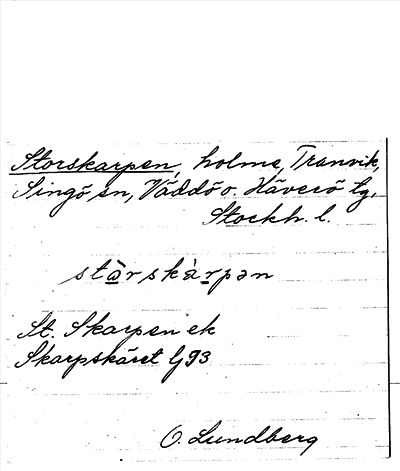 Storskarpen, holme, Tranvik,
Singö sn, Väddö o. Häverö tg,
Stockh. l.
stàrskàrpən
St. Skarpen ek
Skarpskäret G93
O. Lundberg